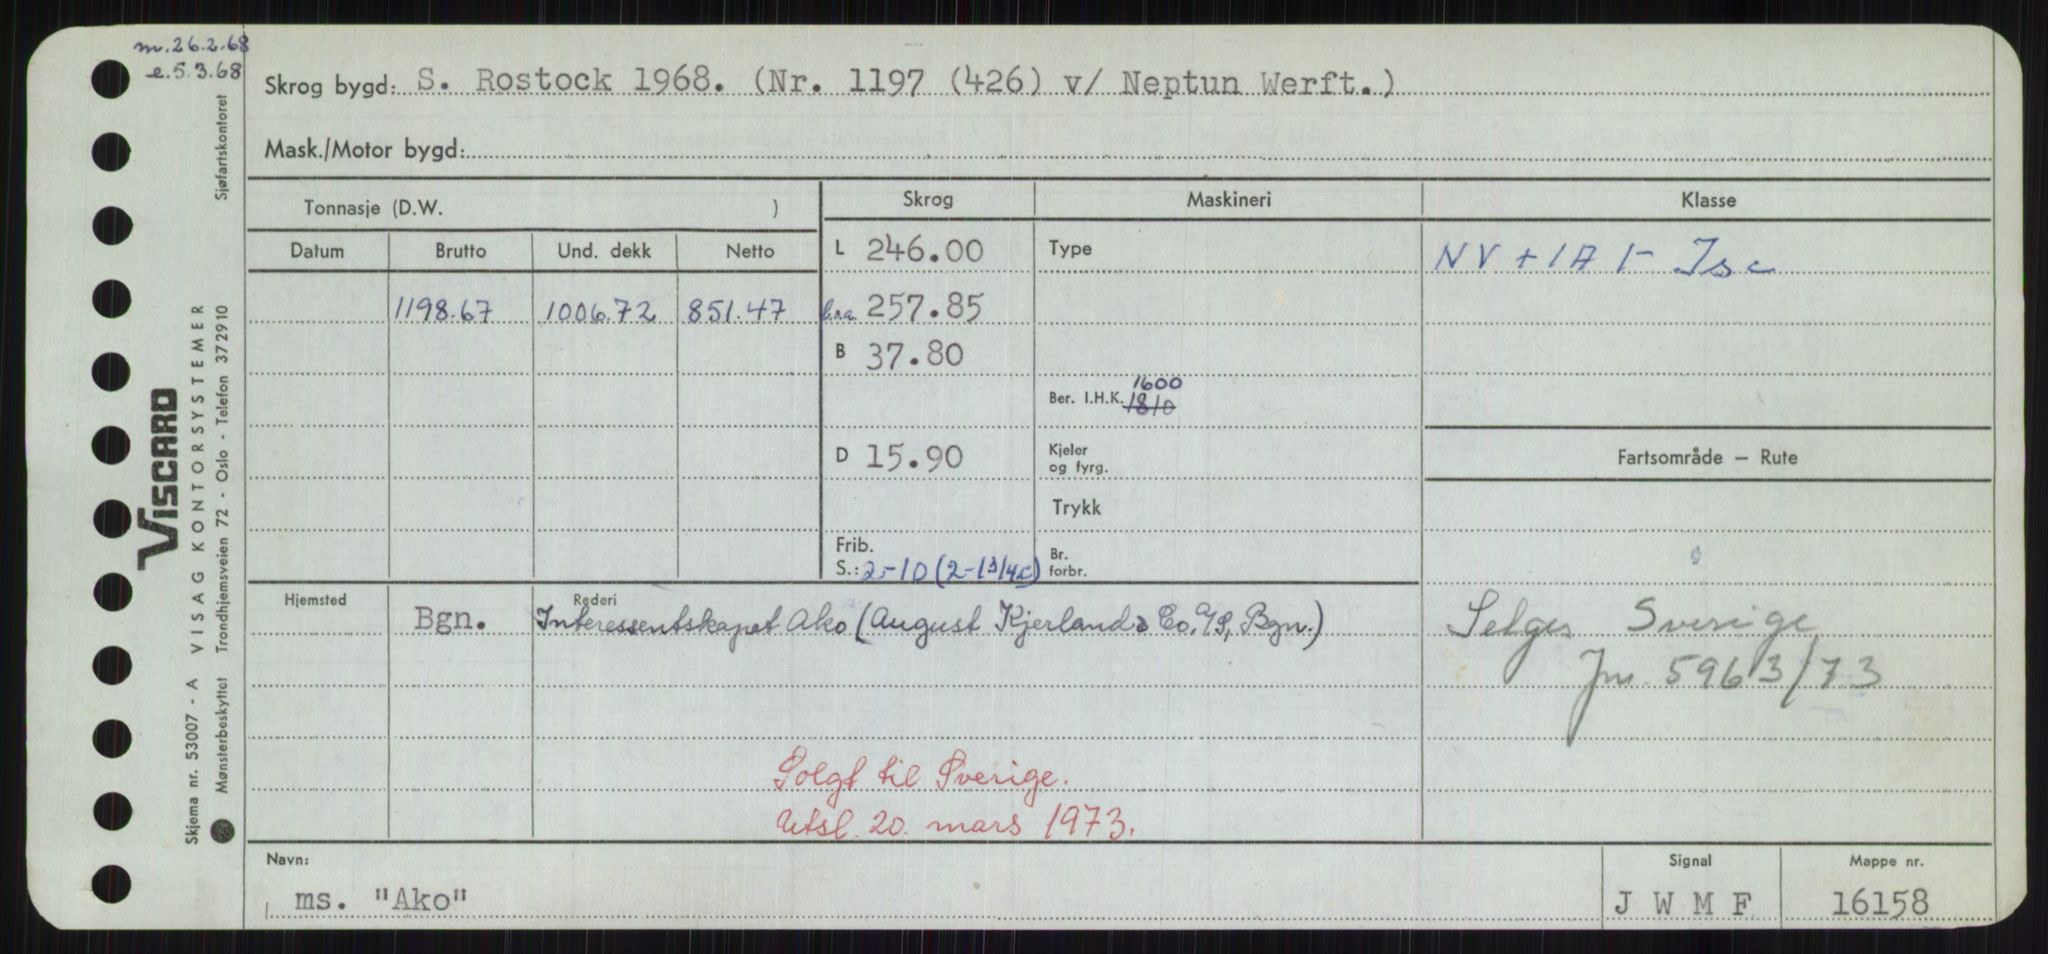 m. 26.2.68
e. 5.3.68
Skrog bygd: S. Rostock 1968. (Nr. 1197 (426) v/ Neptun Werft.)
Mask./Motor bygd:
Tonnasje (D.W. )
Skrog
Maskineri
Klasse
Datum Brutto Und. dekk Netto
L 246.00
Type
NV + 1A 1- Is c
1198.67 1006.72 851.47
l.o.a. 257.85
B 37.80
Ber. I.H.K. 1600
1810
D 15.90
Kjeler
og fyrg.
Fartsområde – Rute
Trykk
Frib.
S.: 2-10 (2-1 3/4
Br.
forbr.
Hjemsted Bgn.
Rederi
Interessentskapet Ako (August Kjerland & Co. A/S, Bgn.)
Selges Sverige
Jnr. 5963/73
Solgt til Sverige.
Utsl. 20. mars 1973.
Navn:
ms. "Ako"
Signal
J W M F
Mappe nr.
16158
VISCARD
Skjema nr. 53007 - A VISAG KONTORSYSTEMER
Mønsterbeskyttet Trondhjemsveien 72 - Oslo - Telefon 372910 Sjøfartskontoret